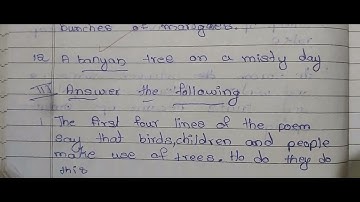 bunches of marigolds.
12 A banyan tree on a misty day
III Answer the following
1 The first four lines of the poem
say that birds, children and people
make use of trees. Ho do they do
this